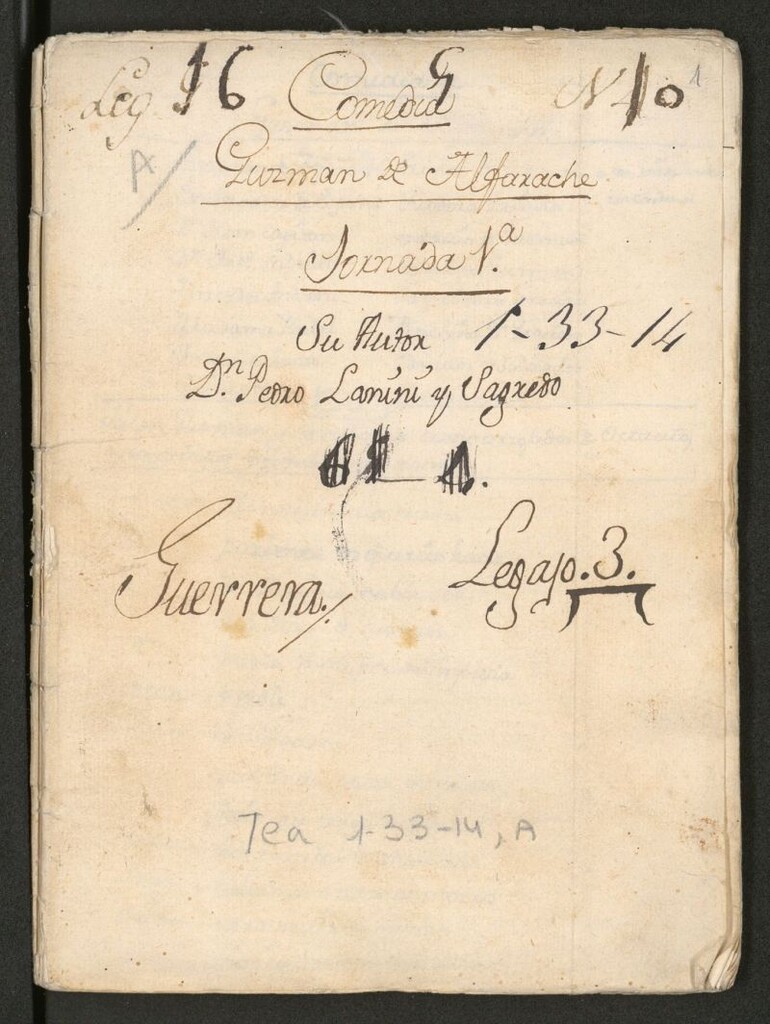 Leg 16 Comedia N 10 1
A
Guzman de Alfarache
Jornada 1.ª
Su Autor 1-33-14
Dn. Pedro Lanini y Sagredo
Guerrera. Legajo. 3.
Tea 1-33-14, A